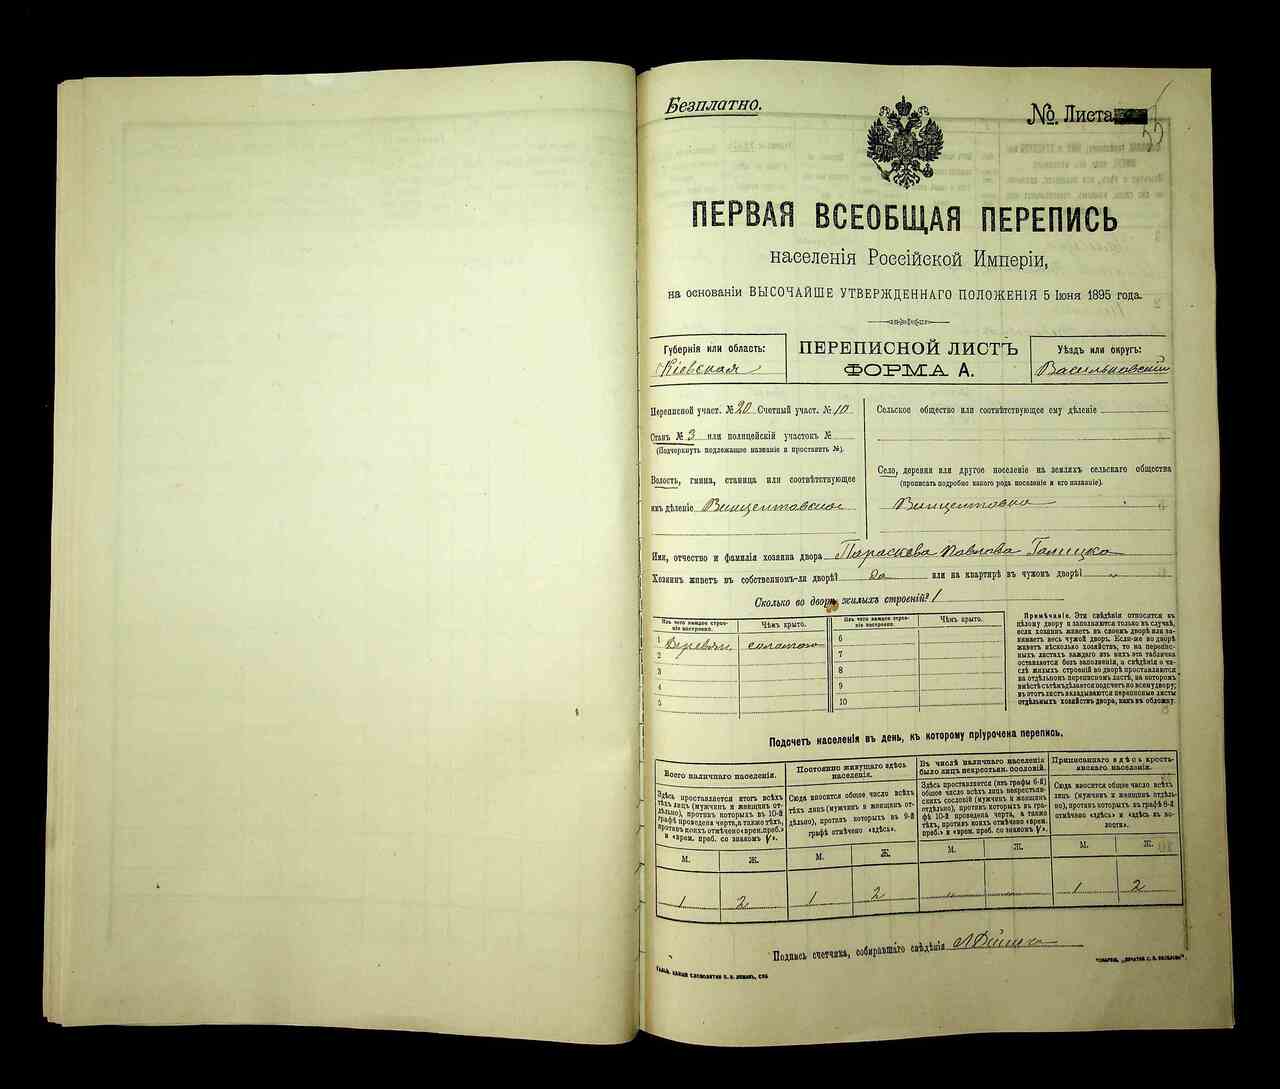 Безплатно.
№. Листа
ПЕРВАЯ ВСЕОБЩАЯ ПЕРЕПИСЬ
населенія Россійской Имперіи,
на основаніи ВЫСОЧАЙШЕ УТВЕРЖДЕННАГО ПОЛОЖЕНІЯ 5 Іюня 1895 года.
Губернія или область:
Кіевская
ПЕРЕПИСНОЙ ЛИСТЪ
ФОРМА А.
Уѣздъ или округъ:
Васильковскій
Переписной участ. № 20 Счетный участ. № 10
Станъ № 3 или полицейскій участокъ №
(Подчеркнуть подлежащее названіе и проставить №).
Волость, гмина, станица или соотвѣтствующее
имъ дѣленіе Винцентовская
Сельское общество или соотвѣтствующее ему дѣленіе
Село, деревня или другое поселеніе на земляхъ сельскаго общества
(прописать подробно какого рода поселеніе и его названіе).
Винцентовка
Имя, отчество и фамилія хозяина двора Параскева Павлова Галицка
Хозяинъ живетъ въ собственномъ-ли дворѣ? да или на квартирѣ въ чужомъ дворѣ? "
Сколько во дворѣ жилыхъ строеній? 1
Изъ чего каждое строе-
ніе построено.
Чѣмъ крыто.
Изъ чего каждое строе-
ніе построено.
Чѣмъ крыто.
1 Деревян. соломою
2
3
4
5
6
7
8
9
10
Примѣчаніе. Эти свѣдѣнія относятся къ
цѣлому двору и заполняются только въ случаѣ,
если хозяинъ живетъ въ своемъ дворѣ или за-
нимаетъ весь чужой дворъ. Если-же во дворѣ
живетъ нѣсколько хозяйствъ, то на перепис-
ныхъ листахъ каждаго изъ нихъ эта табличка
оставляется безъ заполненія, а свѣдѣнія о чи-
слѣ жилыхъ строеній во дворѣ проставляются
на отдѣльномъ переписномъ листѣ, на которомъ
вмѣстѣ съ тѣмъ дѣлается подсчетъ по всему двору;
въ этотъ листъ вкладываются переписные листы
отдѣльныхъ хозяйствъ двора, какъ въ обложку.
Подсчетъ населенія въ день, къ которому пріурочена перепись.
Всего наличнаго населенія.
Здѣсь проставляется итогъ всѣхъ
тѣхъ лицъ (мужчинъ и женщинъ от-
дѣльно), противъ которыхъ въ 10-й
графѣ проведена черта, а также тѣхъ,
противъ коихъ отмѣчено «врем. преб.»
и «врем. преб. со знакомъ V».
Постоянно живущаго здѣсь
населенія.
Сюда вносится общее число всѣхъ
тѣхъ лицъ (мужчинъ и женщинъ от-
дѣльно), противъ которыхъ въ 9-й
графѣ отмѣчено «здѣсь».
Въ числѣ наличнаго населенія
было лицъ некрестьян. сословій.
Здѣсь проставляется (изъ графы 6-й)
общее число всѣхъ лицъ некрестьян-
скихъ сословій (мужчинъ и женщинъ
отдѣльно), противъ которыхъ въ гра-
фѣ 10-й проведена черта, а также
тѣхъ, противъ коихъ отмѣчено «врем.
преб.» и «врем. преб. со знакомъ V».
Приписаннаго здѣсь кресть-
янскаго населенія.
Сюда вносится общее число всѣхъ
лицъ (мужчинъ и женщинъ отдѣль-
но), противъ которыхъ въ графѣ 8-й
отмѣчено «здѣсь» и «здѣсь въ во-
лости».
М. Ж. М. Ж. М. Ж. М. Ж.
1 2 1 2 " " 1 2
Подпись счетчика, собиравшаго свѣдѣнія